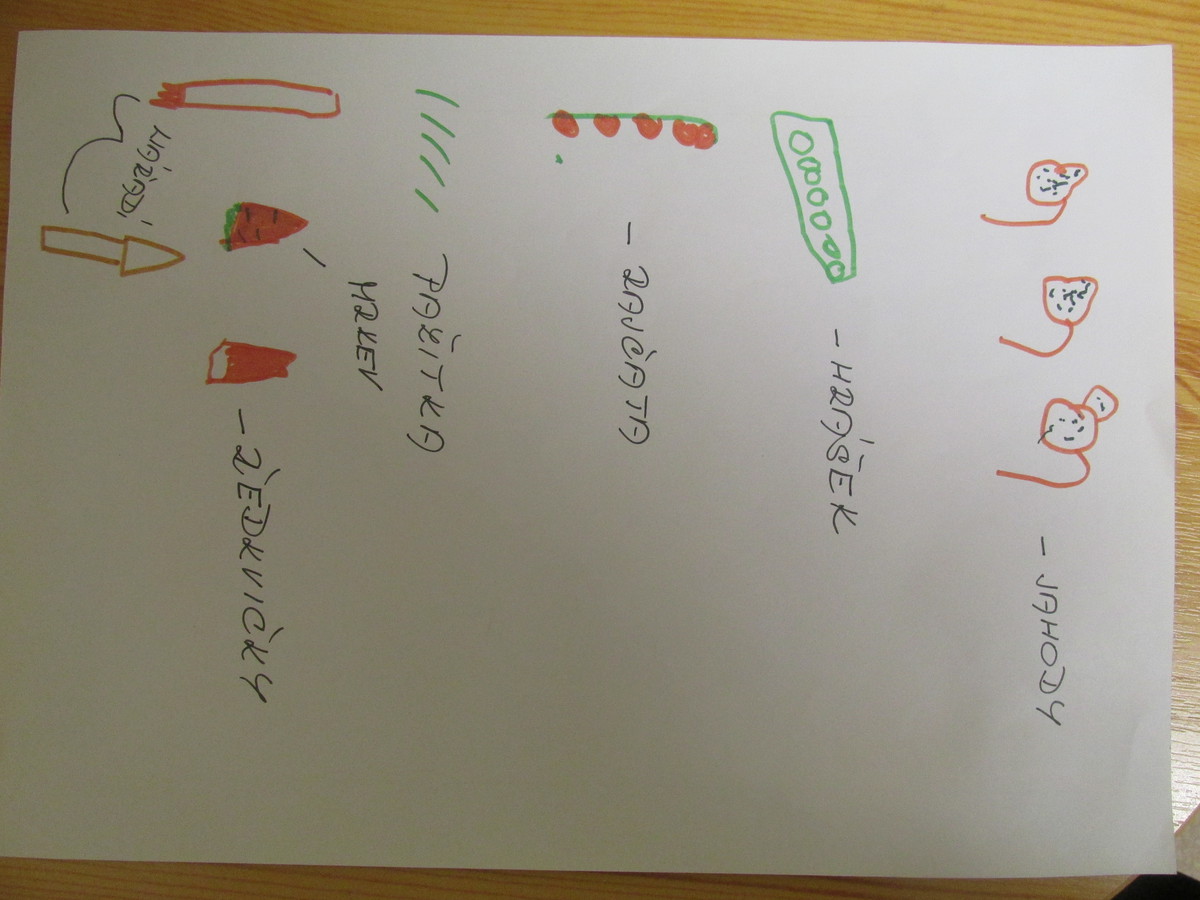 - JAHODY
- HRÁŠEK
- RAJČATA
PAŽITKA
MRKEV
- ŘEDKVIČKY
NÁŘADÍ